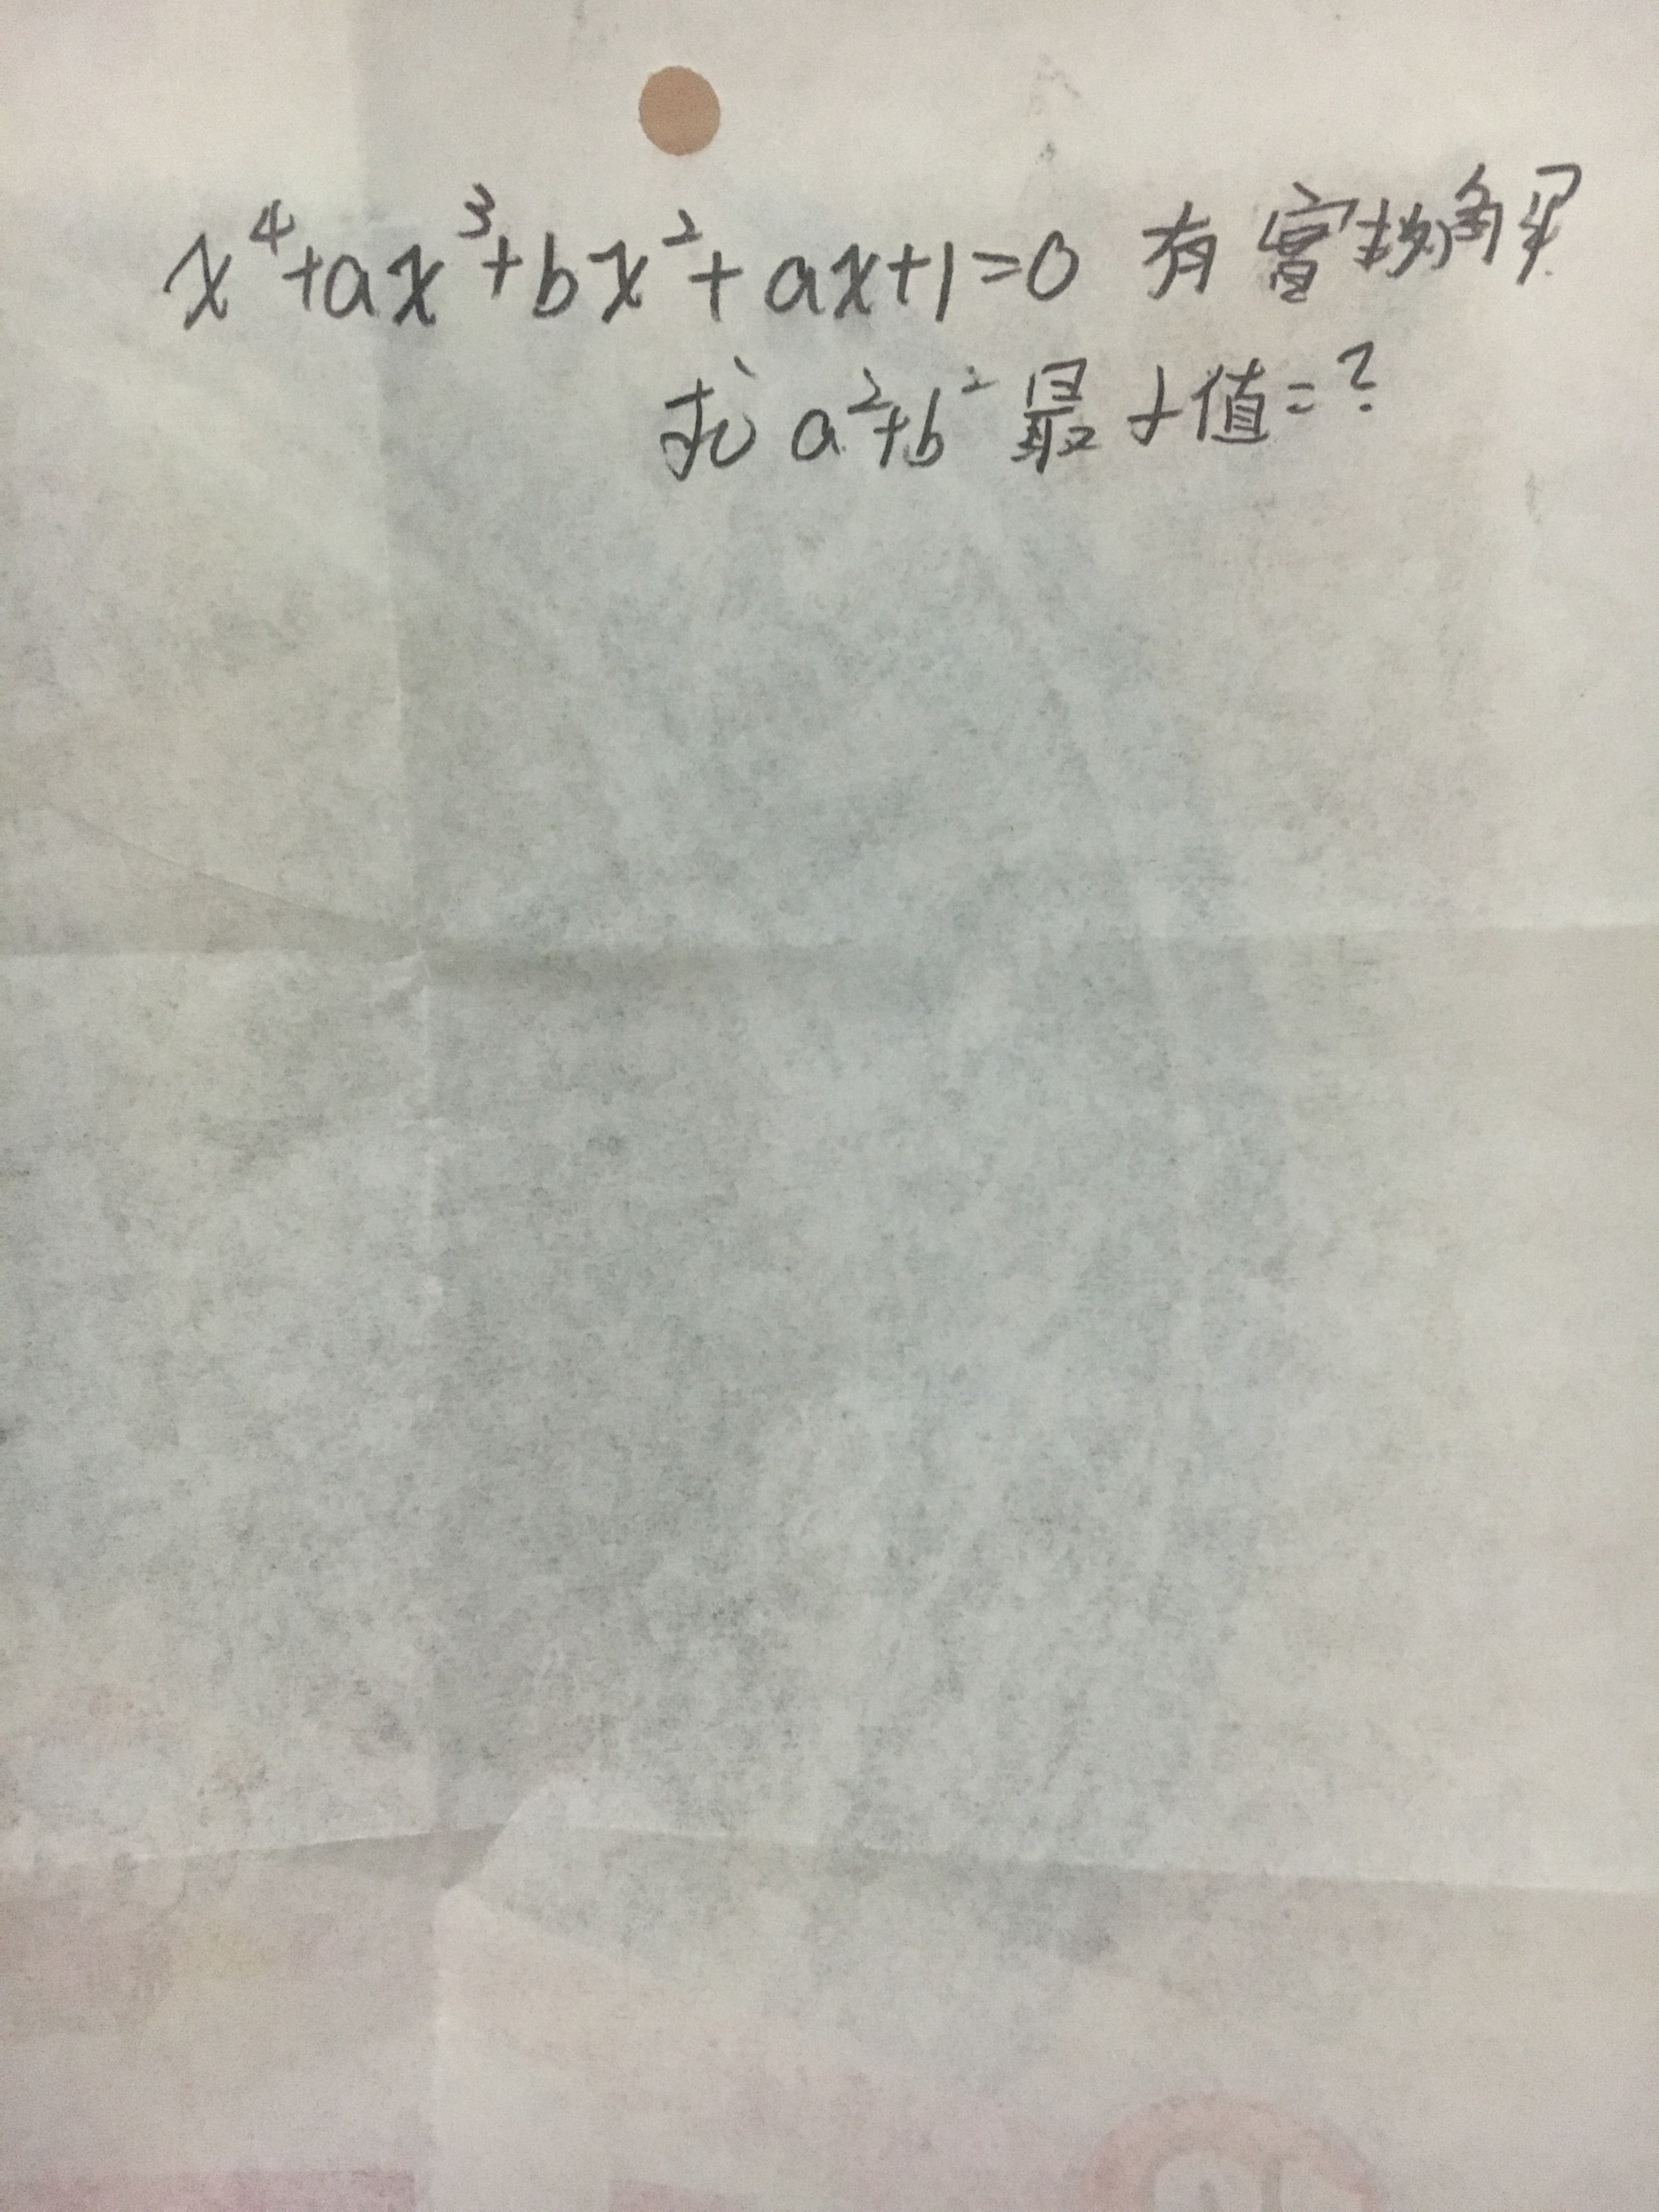 x⁴+ax³+bx²+ax+1=0 有實數解
求 a²+b² 最小值=?